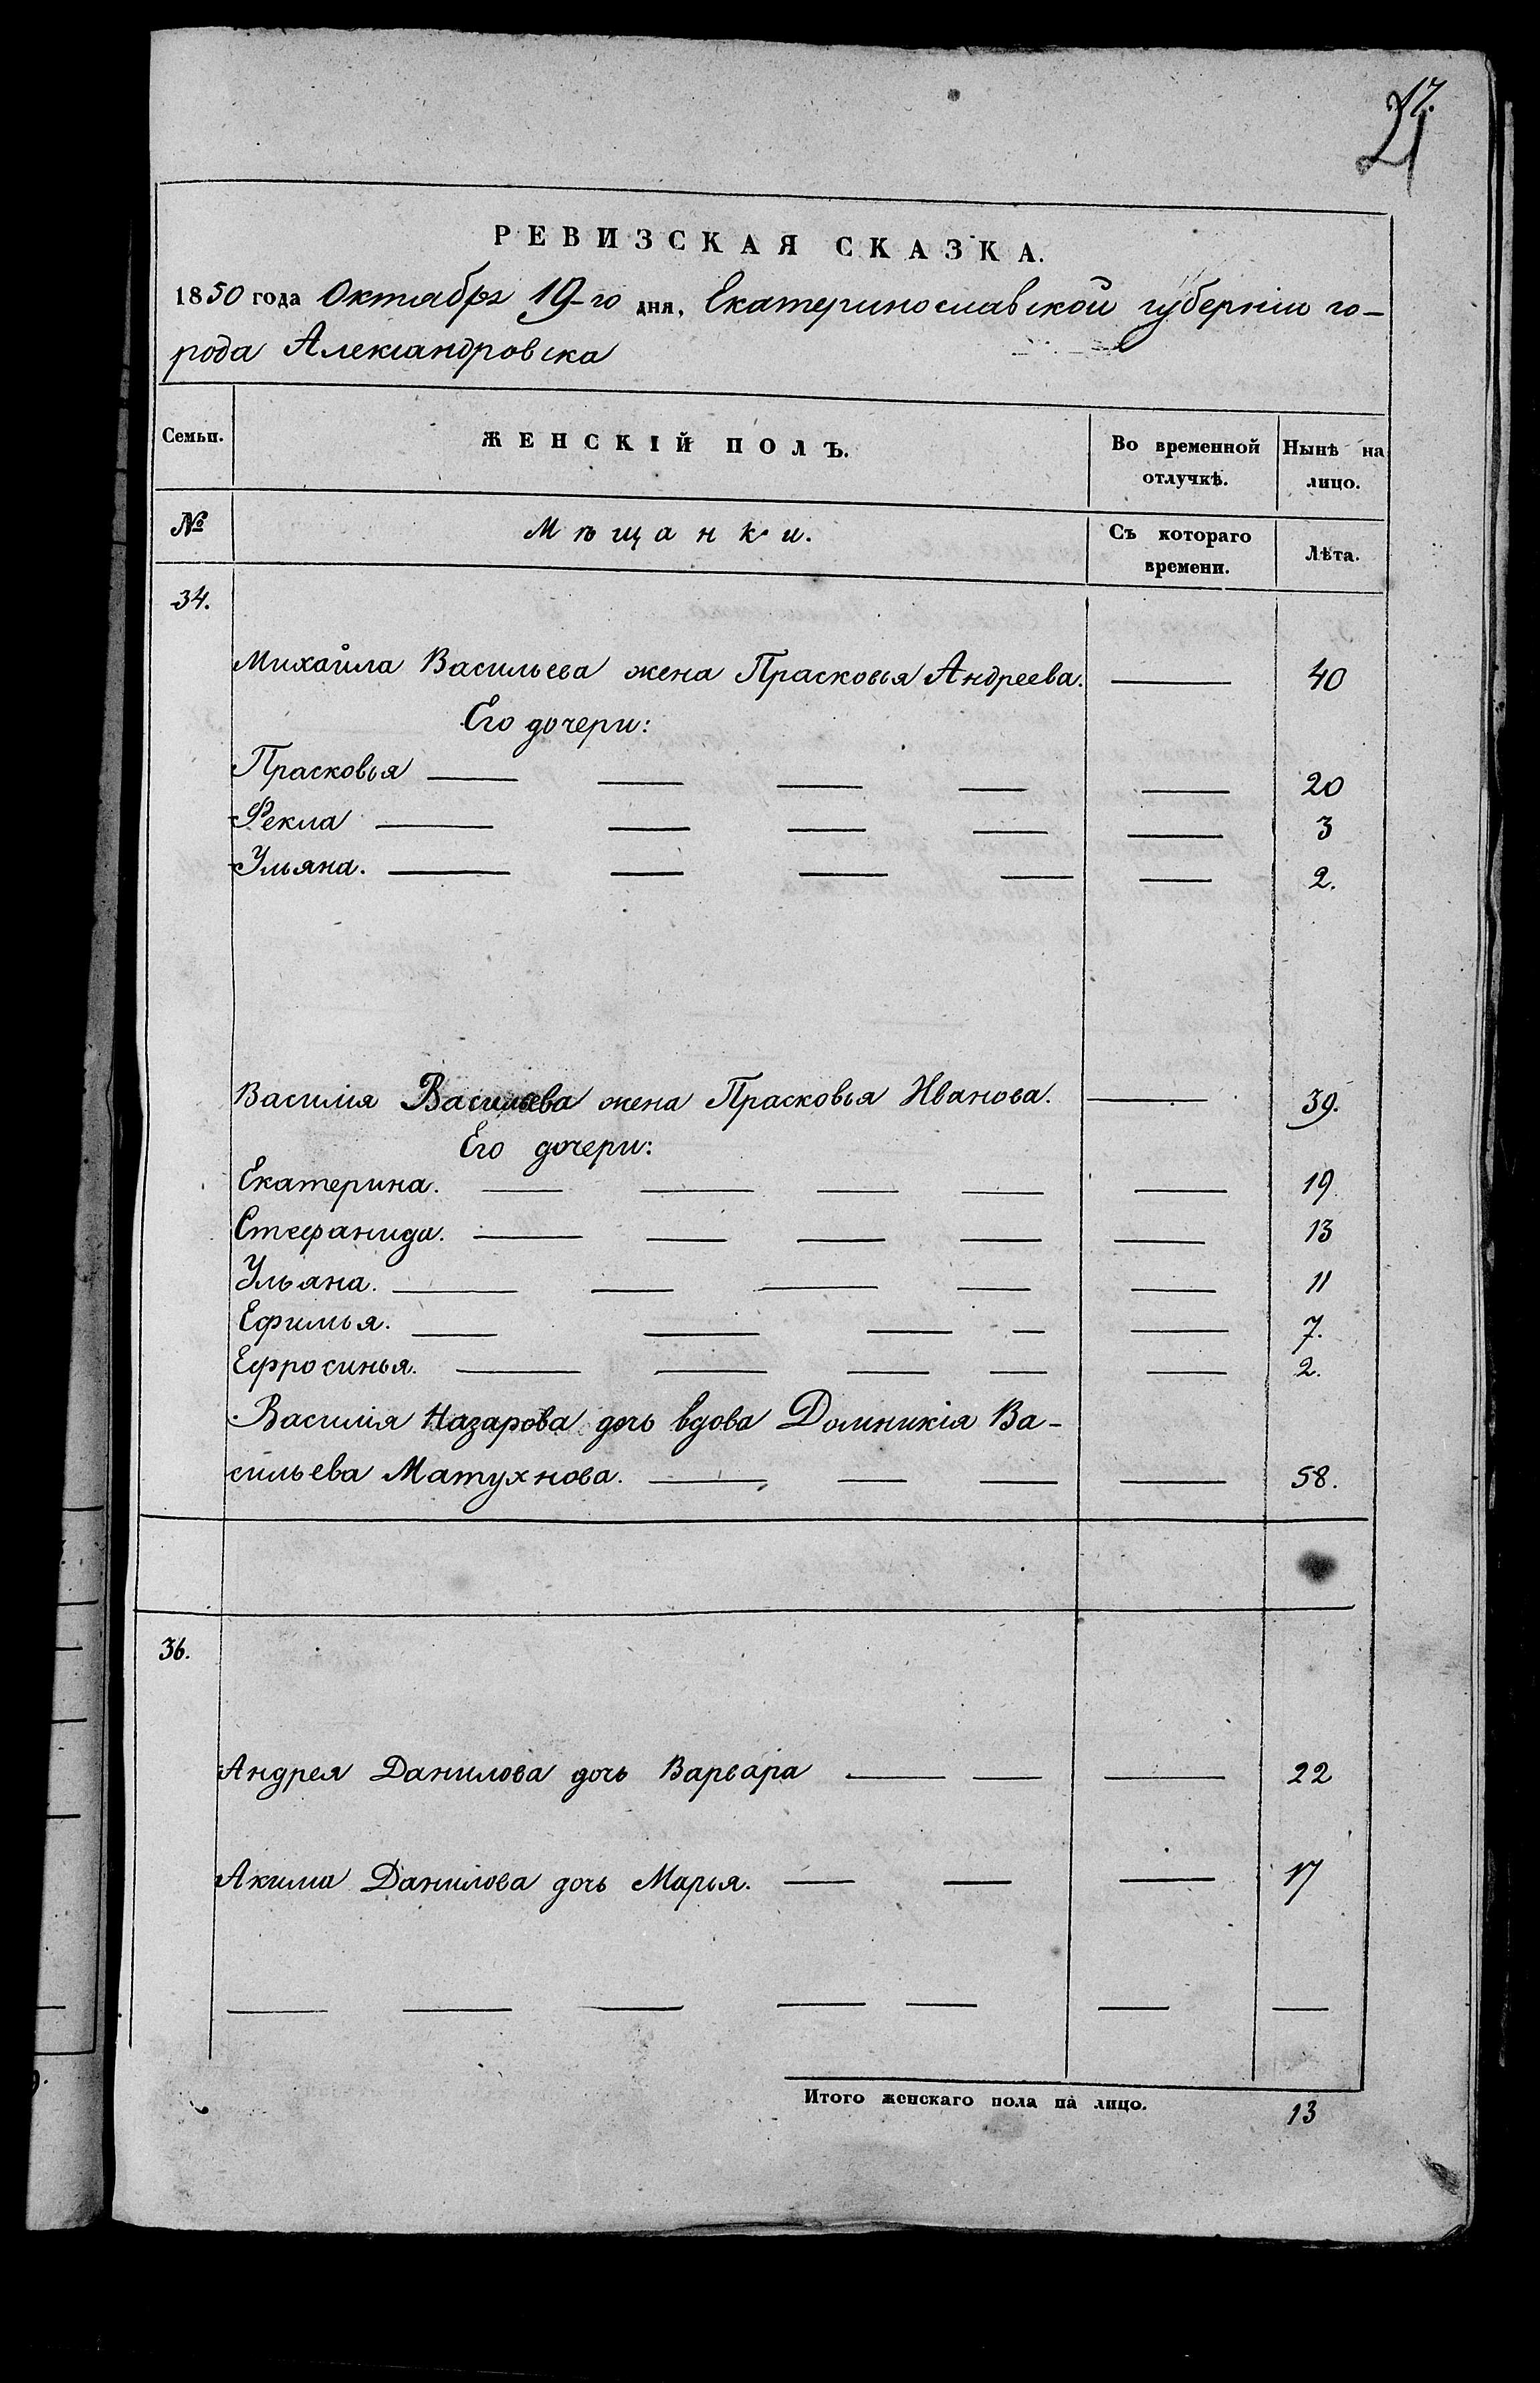 17.
21
РЕВИЗСКАЯ СКАЗКА.
1850 года Октября 19-го дня, Екатеринославской губерніи го-
рода Александровска
Семьи.
ЖЕНСКІЙ ПОЛЪ.
Во временной отлучкѣ.
Нынѣ на лицо.
№
Мѣщанки.
Съ котораго времени.
Лѣта.
34.
Михайла Васильева жена Прасковья Андреева. — 40
Его дочери:
Прасковья — — — — — 20
Фекла — — — — — 3
Ульяна. — — — — — 2.
Василія Васильева жена Прасковья Иванова. — 39.
Его дочери:
Екатерина. — — — — — 19
Стефанида. — — — — — 13
Ульяна. — — — — — 11
Ефимья. — — — — — 7.
Ефросинья. — — — — — 2.
Василія Назарова дочь вдова Домникія Ва-
сильева Матухнова. — — — — 58.
36.
Андрея Данилова дочь Варвара — — — 22
Акима Данилова дочь Марья. — — — 17
— — — — — — —
Итого женскаго пола на лицо. 13